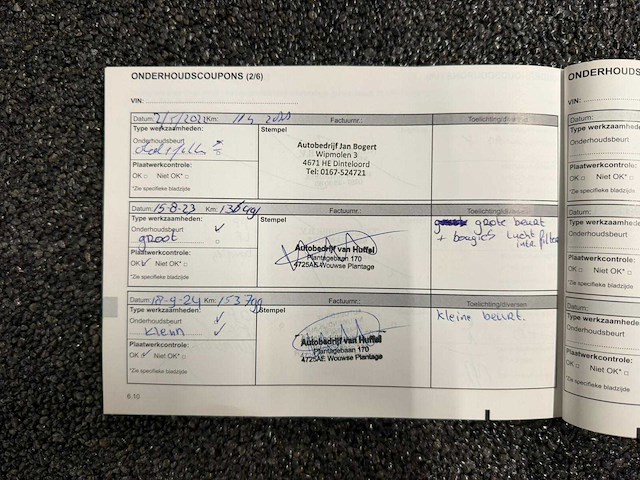 ONDERHOUDSCOUPONS (2/6)
VIN:
Datum: 2/5/2022 Km: Factuurnr.: Toelichting/diversen
Type werkzaamheden: Stempel
Onderhoudsbeurt
Autobedrijf Jan Bogert
Wipmolen 3
4671 HE Dinteloord
Tel: 0167-524721
Plaatwerkcontrole:
OK Niet OK*
*Zie specifieke bladzijde
Datum: 15-8-23 Km: Factuurnr.: Toelichting/diversen
Type werkzaamheden: Stempel
Onderhoudsbeurt
groot
Autobedrijf van Huffel
Plantagebaan 170
4725AE Wouwse Plantage
grote beurt
+ bougies lucht
filter
Plaatwerkcontrole:
OK Niet OK*
*Zie specifieke bladzijde
Datum: 18-9-24 Km: Factuurnr.: Toelichting/diversen
Type werkzaamheden: Stempel
Onderhoudsbeurt
klein
Autobedrijf van Huffel
Plantagebaan 170
4725AE Wouwse Plantage
kleine beurt.
Plaatwerkcontrole:
OK Niet OK*
*Zie specifieke bladzijde
6.10
ONDERHOUDS
VIN:
Datum:
Type werkzaamheden
Onderhoudsbeurt
Plaatwerkcontrole:
OK Niet OK*
*Zie specifieke bladzijde
Datum:
Type werkzaamheden
Onderhoudsbeurt
Plaatwerkcontrole:
OK Niet OK*
*Zie specifieke bladzijde
Datum:
Type werkzaamheden
Onderhoudsbeurt
Plaatwerkcontrole:
OK Niet OK*
*Zie specifieke bladzijde